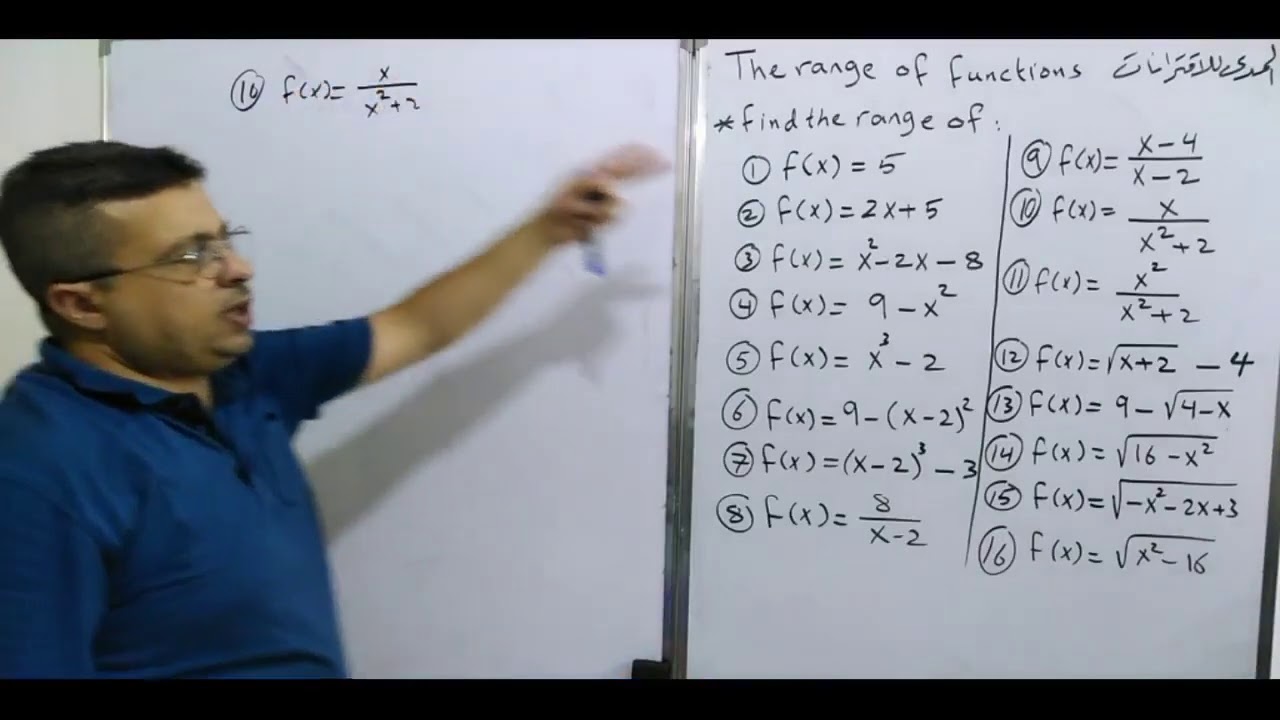 ⑩ f(x)= x/(x²+2)
The range of functions المدى للاقترانات
* find the range of :
① f(x) = 5
② f(x) = 2x+5
③ f(x) = x²-2x-8
④ f(x) = 9-x²
⑤ f(x) = x³-2
⑥ f(x) = 9-(x-2)²
⑦ f(x) = (x-2)³-3
⑧ f(x) = 8/(x-2)
⑨ f(x) = (x-4)/(x-2)
⑩ f(x) = x/(x²+2)
⑪ f(x) = x²/(x²+2)
⑫ f(x) = √(x+2) - 4
⑬ f(x) = 9-√(4-x)
⑭ f(x) = √(16-x²)
⑮ f(x) = √(-x²-2x+3)
⑯ f(x) = √(x²-16)